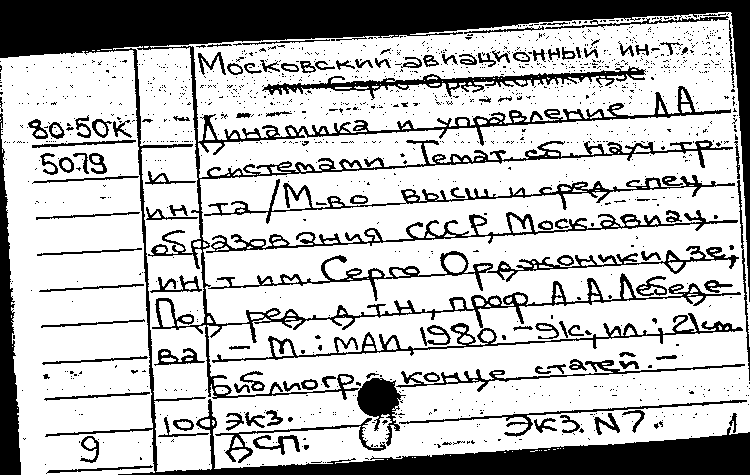 Московский авиационный ин-т.
им. Серго Орджоникидзе.
80-50к Динамика и управление ЛА
5079 и системами: Темат. сб. науч. тр.
ин-та / М-во высш. и сред. спец.
образования СССР, Моск. авиац.
ин-т им. Серго Орджоникидзе;
Под ред. д.т.н., проф. А.А. Лебеде-
ва. - М.: МАИ, 1980. - 91с., ил.; 21см.
Библиогр. в конце статей. -
100 экз.
9 ДСП: Экз. N7. 1